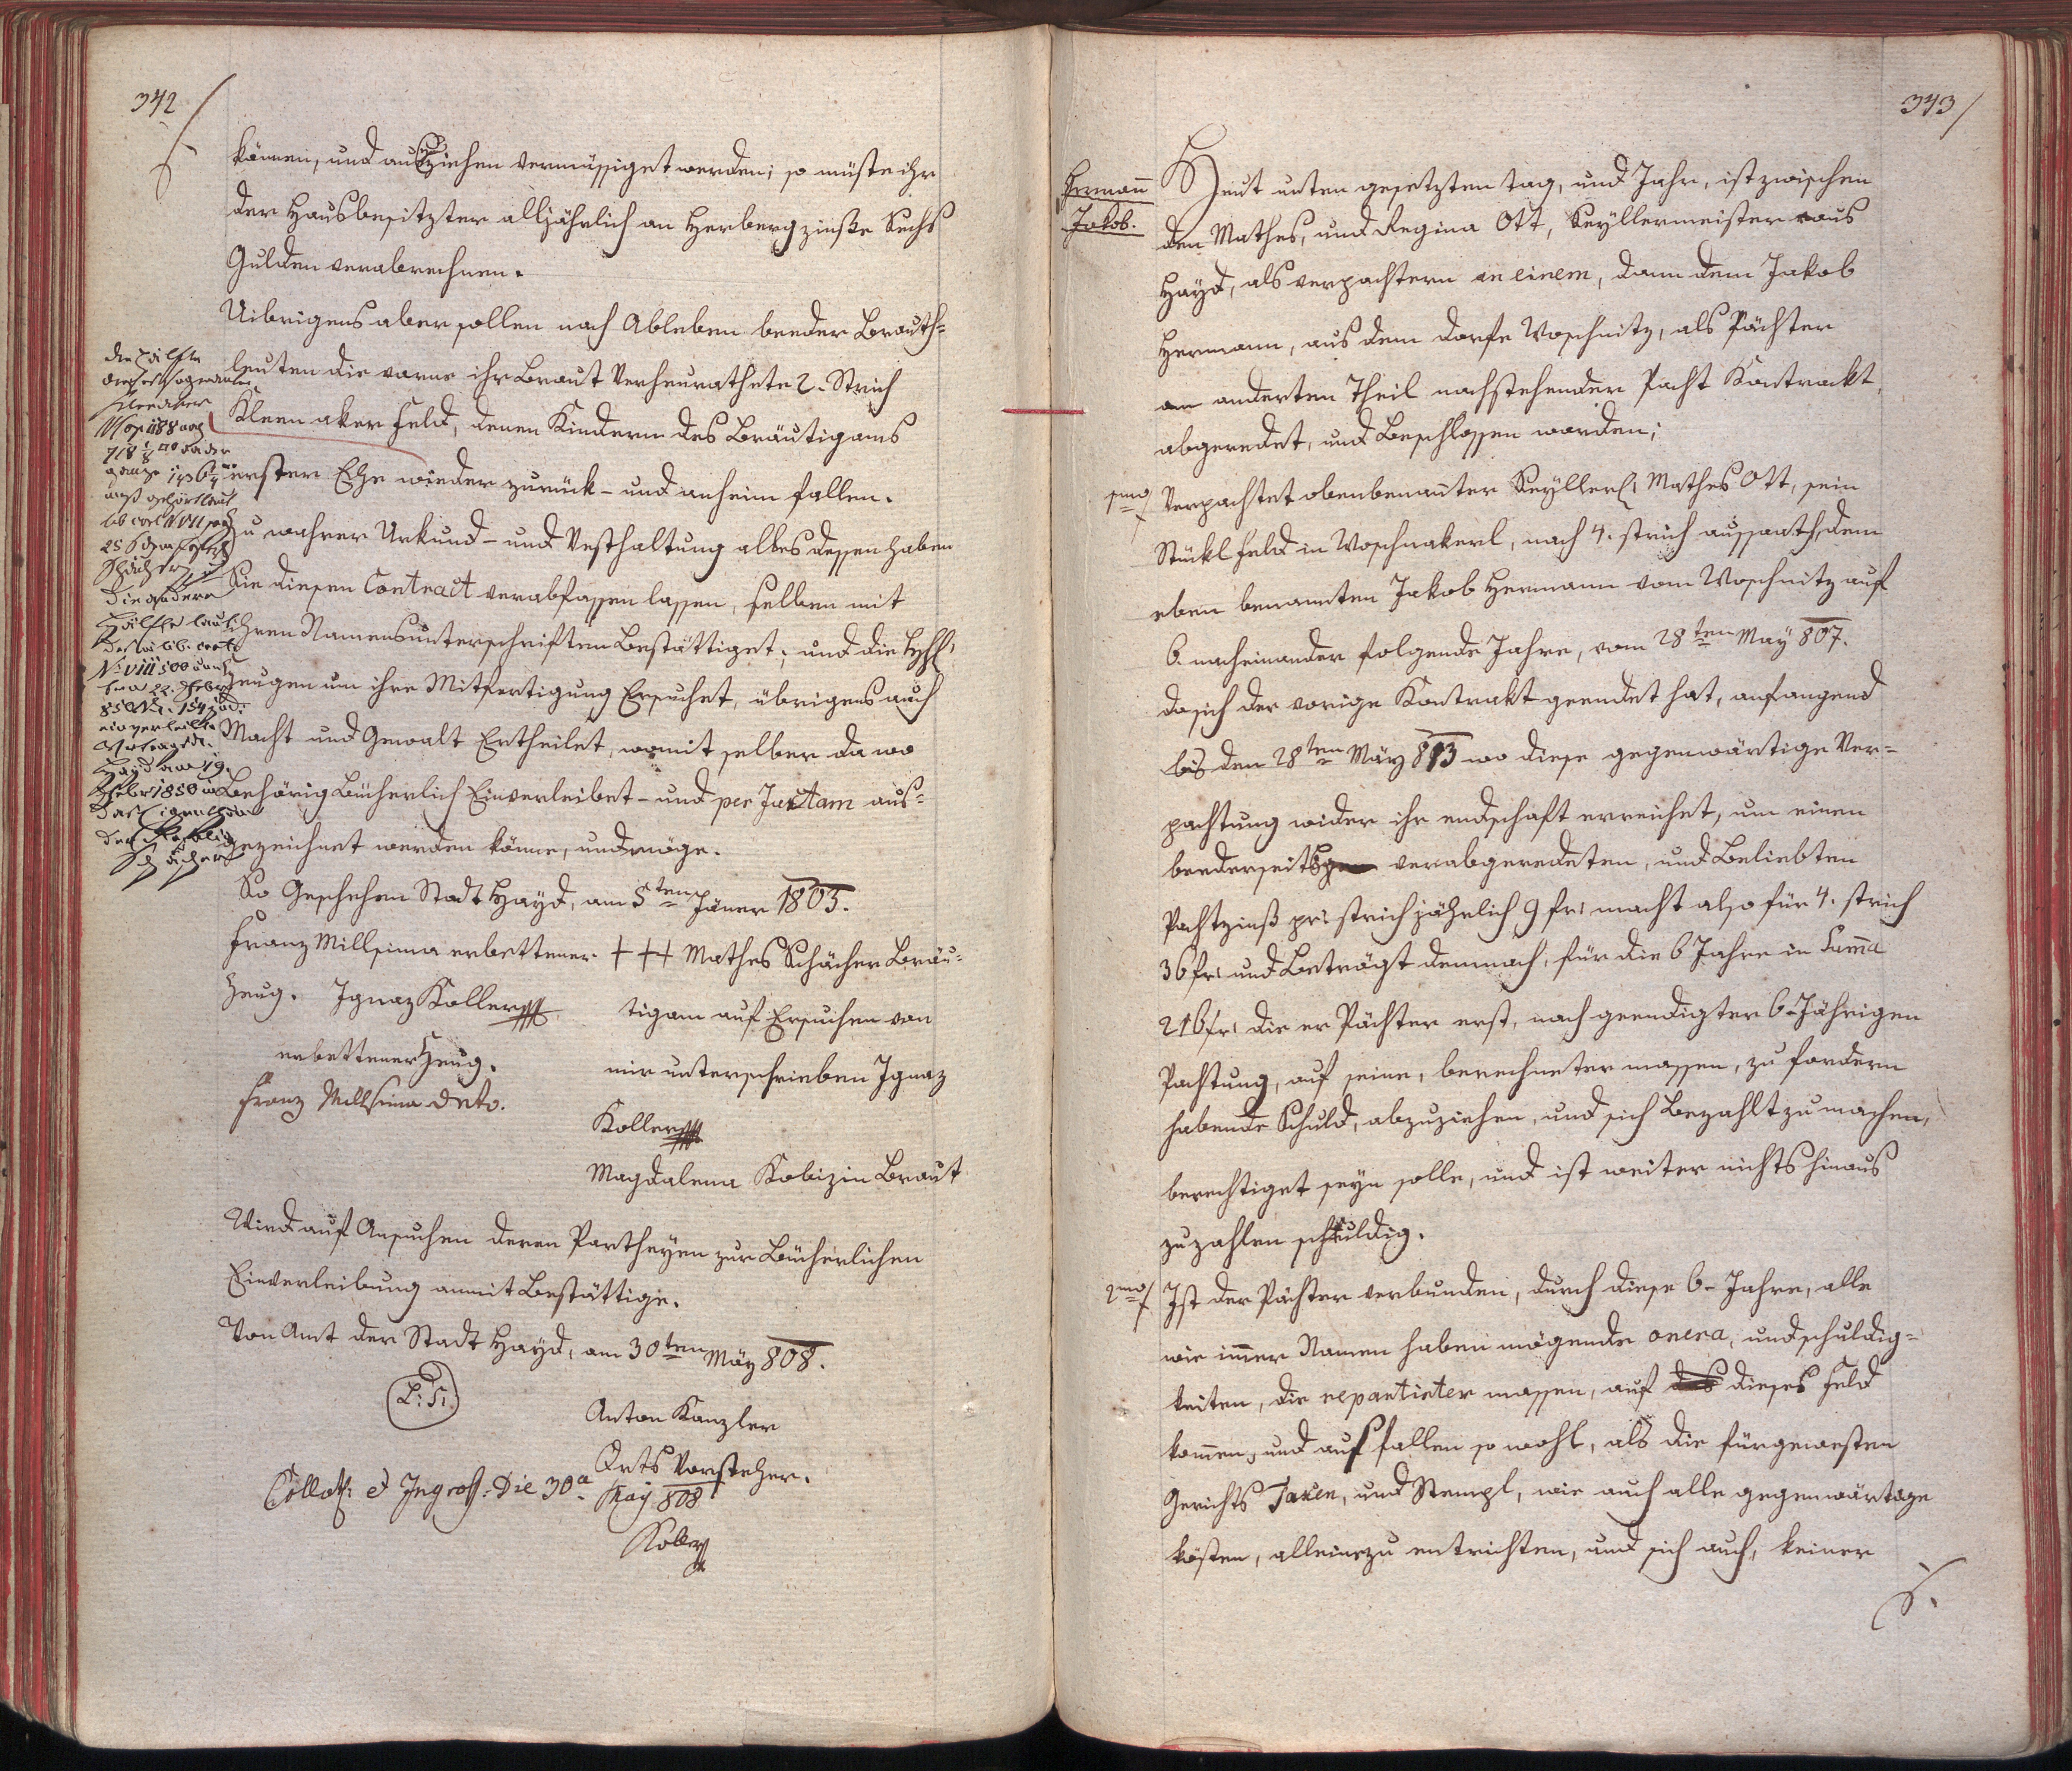 342
können, und ausziehen vermüssiget werden; so müste ihr
der Hausbesitzter alljährlich an Herberg zinße Sechs
Gulden verabrechnen.
Uibrigens aber sollen nach Ableben beeder Brauth-
leuten die vorne ihr Braut Verheurathete 2. Strich
Kleen aker Feld, denen Kindern des Bräutigams
erster Ehe wieder zurück- und anheim fallen.
Zu wahrer Urkund- und Vesthaltung alles dessen haben
Sie diesen Contract verabfassen lassen, selben mit
ihren Namensunterschriften Bestättiget; und die
Zeugen um ihre Mitfertigung Ersuchet, übrigens auch
Macht und Gewalt Ertheilet, womit selber da wo
Behörig Bücherlich Einverleibet- und per Juxtam aus-
gezeichnet werden könne, und möge.
So Geschehen Stadt Hayd, am 5ten Jäner 1803.
Franz Millsima erbettener
Zeug. Ignaz Koller
erbettener Zeug.
Franz Millsima deto.
+++ Mathes Schächer Bräu-
tigam auf Ersuchen von
mir unterschrieben Ignaz
Koller
Magdalena Kobizin Braut
Wird auf Ansuchen deren Partheyen zur Bücherlichen
Einverleibung anmit Bestättige.
Von Amt der Stadt Hayd, am 30ten May 808.
L. S.
Anton Kanzler
Orts Vorsteher.
Collat: et Ingross: Die 30a May 808
Koller
die Hälfte
Kleeaker
ganze
Schächer
die andere
Hälfte laut
343
Hermann
Jakob.
Heut unten gesetzten tag, und Jahr, ist zwischen
den Mathes, und Regina Ott, Seyllermeister aus
Hayd, als verpachtern an einem, dann dem Jakob
Hermann, aus dem dorfe Woschnitz, als Pächter
am anderten Theil nachstehender Pacht Kontrackt,
abgeredet, und Beschlossen worden;
1mo Verpachtet obenbenannter Seyller Mathes Ott, sein
Stükl feld in Woschnakerl, nach 4. strich aussaath, dem
eben benannten Jakob Hermann vom Woschnitz auf
6. nacheinander folgende Jahre, vom 28ten May 807.
da sich der vorige Kontrakt geendet hat, anfangend
bis den 28ten May 813 wo diese gegenwärtige Ver-
pachtung wider ihr endschaft erreichet, um einen
beederseits verabgeredeten, und Beliebten
Pachtzinß pr: strich jährlich 9 fr: macht also für 4. strich
36 fr: und Beträgt demnach, für die 6 Jahre in Suma
216 fr: die er Pächter erst, nach geendigter 6-Jährigen
Pachtung, auf seine, berechneter massen, zu fordern
habende Schuld, abzuziehen, und sich Bezahlt zu machen,
berechtiget seyn solle, und ist weiter nichts hinaus
zu zahlen schuldig.
2mo Ist der Pächter verbunden, durch diese 6- Jahre, alle
wie immer Namen haben mögende onera, und schuldig-
keiten, die repartirter massen, auf dieses Feld
kommen, und ausfallen so wohl, als die fürgewesten
Gerichts Taxen, und Stempl, wie auch alle gegenwärtige
kösten, alleine zu entrichten, und sich auch, keiner